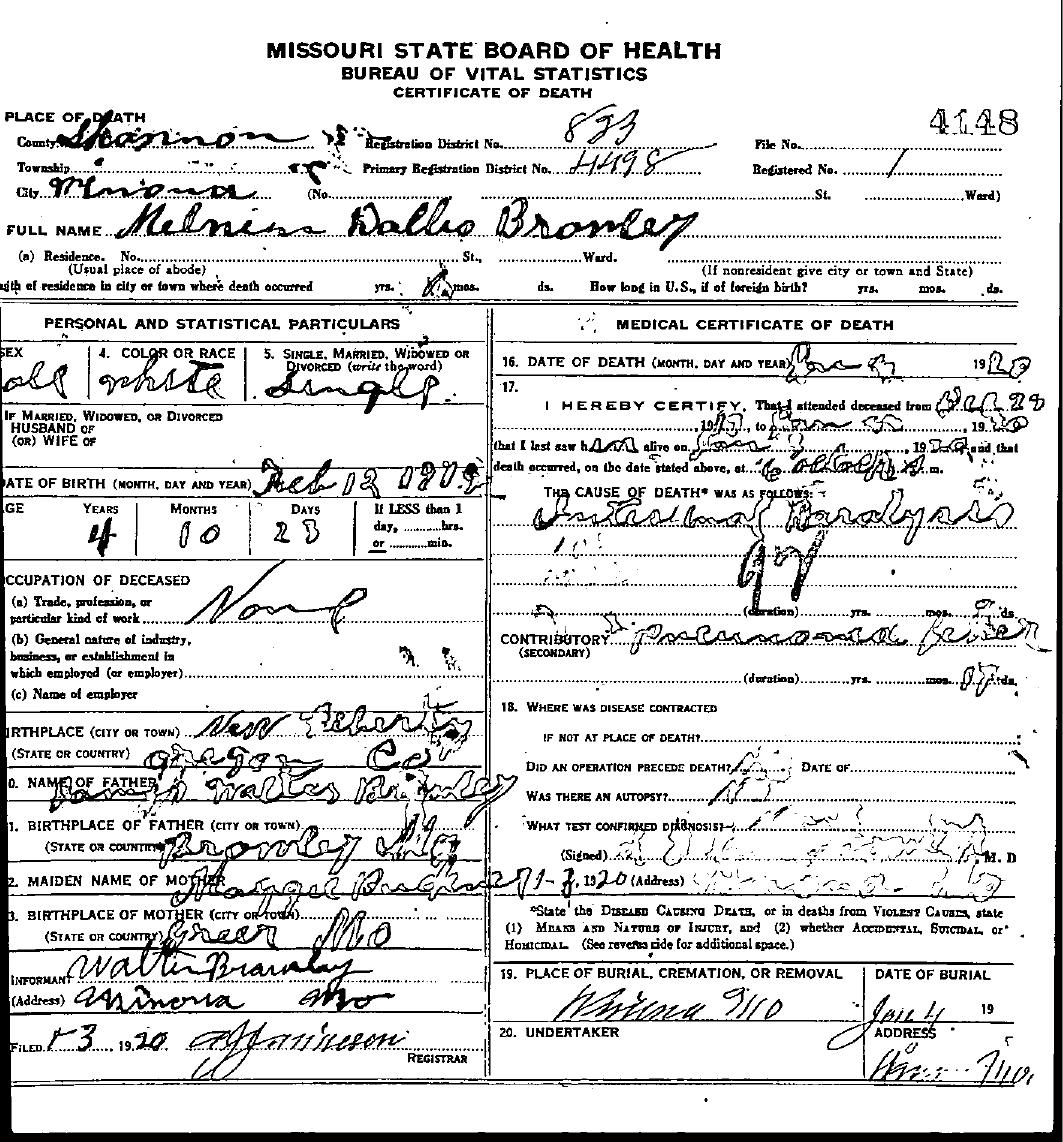 MISSOURI STATE BOARD OF HEALTH
BUREAU OF VITAL STATISTICS
CERTIFICATE OF DEATH
4148
PLACE OF DEATH
County Shannon Registration District No. 823 File No.
Township Primary Registration District No. 4498 Registered No. 1
City Winona (No. St. Ward)
FULL NAME Dallis Bromley
(a) Residence. No. St., Ward.
(Usual place of abode) (If nonresident give city or town and State)
gth of residence in city or town where death occurred yrs. mos. ds. How long in U.S., if of foreign birth? yrs. mos. ds.
PERSONAL AND STATISTICAL PARTICULARS
SEX 4. COLOR OR RACE 5. SINGLE, MARRIED, WIDOWED OR DIVORCED (write the word)
white single
IF MARRIED, WIDOWED, OR DIVORCED
HUSBAND OF
(OR) WIFE OF
DATE OF BIRTH (MONTH, DAY AND YEAR) Feb 12
GE YEARS MONTHS DAYS If LESS than 1 day, hrs. or min.
4 10 23
CCUPATION OF DECEASED
(a) Trade, profession, or
particular kind of work None
(b) General nature of industry,
business, or establishment in
which employed (or employer)
(c) Name of employer
IRTHPLACE (CITY OR TOWN) New Liberty
(STATE OR COUNTRY) Oregon Co
0. NAME OF FATHER Walter Bromley
1. BIRTHPLACE OF FATHER (CITY OR TOWN)
(STATE OR COUNTRY) Bromley
2. MAIDEN NAME OF MOTHER Maggie
3. BIRTHPLACE OF MOTHER (CITY OR TOWN)
(STATE OR COUNTRY) Greer Mo
INFORMANT Walter Bromley
(Address) Winona Mo
FILED 1-3, 1920
REGISTRAR
MEDICAL CERTIFICATE OF DEATH
16. DATE OF DEATH (MONTH, DAY AND YEAR) Jan 1920
17.
I HEREBY CERTIFY, That I attended deceased from Dec 28
, 19 , to Jan , 1920
that I last saw h alive on Jan , 1920 and that
death occurred, on the date stated above, at m.
THE CAUSE OF DEATH* WAS AS FOLLOWS:
Intestinal Paralysis
97
(duration) yrs. mos. ds.
CONTRIBUTORY Pneumonia Fever
(SECONDARY)
(duration) yrs. mos. ds.
18. WHERE WAS DISEASE CONTRACTED
IF NOT AT PLACE OF DEATH?
DID AN OPERATION PRECEDE DEATH? DATE OF
WAS THERE AN AUTOPSY?
WHAT TEST CONFIRMED DIAGNOSIS?
(Signed) , M. D
, 1920 (Address)
*State the DISEASE CAUSING DEATH, or in deaths from VIOLENT CAUSES, state
(1) MEANS AND NATURE OF INJURY, and (2) whether ACCIDENTAL, SUICIDAL, or
HOMICIDAL. (See reverse side for additional space.)
19. PLACE OF BURIAL, CREMATION, OR REMOVAL DATE OF BURIAL
Winona Mo Jan 4 19
20. UNDERTAKER ADDRESS
Mo.